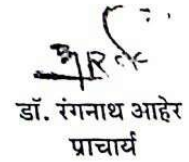 डॉ. रंगनाथ आहेर
प्राचार्य